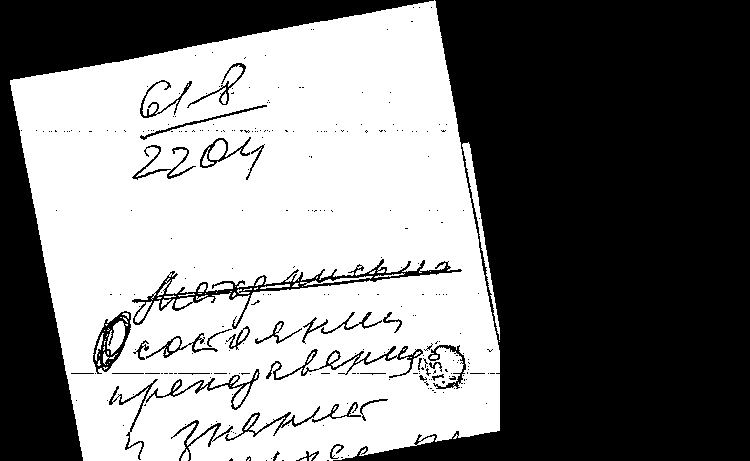 61-8
2204
Метод. письмо
О состоянии
преподавания
и знаний